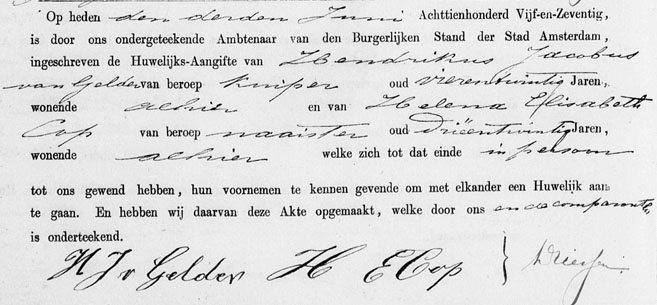 Op heden den derden Juni Achttienhonderd Vijf-en-Zeventig,
is door ons ondergeteekende Ambtenaar van den Burgerlijken Stand der Stad Amsterdam,
ingeschreven de Huwelijks-Aangifte van Hendrikus Jacobus
van Gelder van beroep kuiper oud vierentwintig Jaren,
wonende alhier en van Helena Elisabeth
Cop van beroep naaister oud drieëntwintig Jaren,
wonende alhier welke zich tot dat einde in persoon
tot ons gewend hebben, hun voornemen te kennen gevende om met elkander een Huwelijk aan
te gaan. En hebben wij daarvan deze Akte opgemaakt, welke door ons en de comparanten,
is onderteekend.
H J v Gelder H E Cop